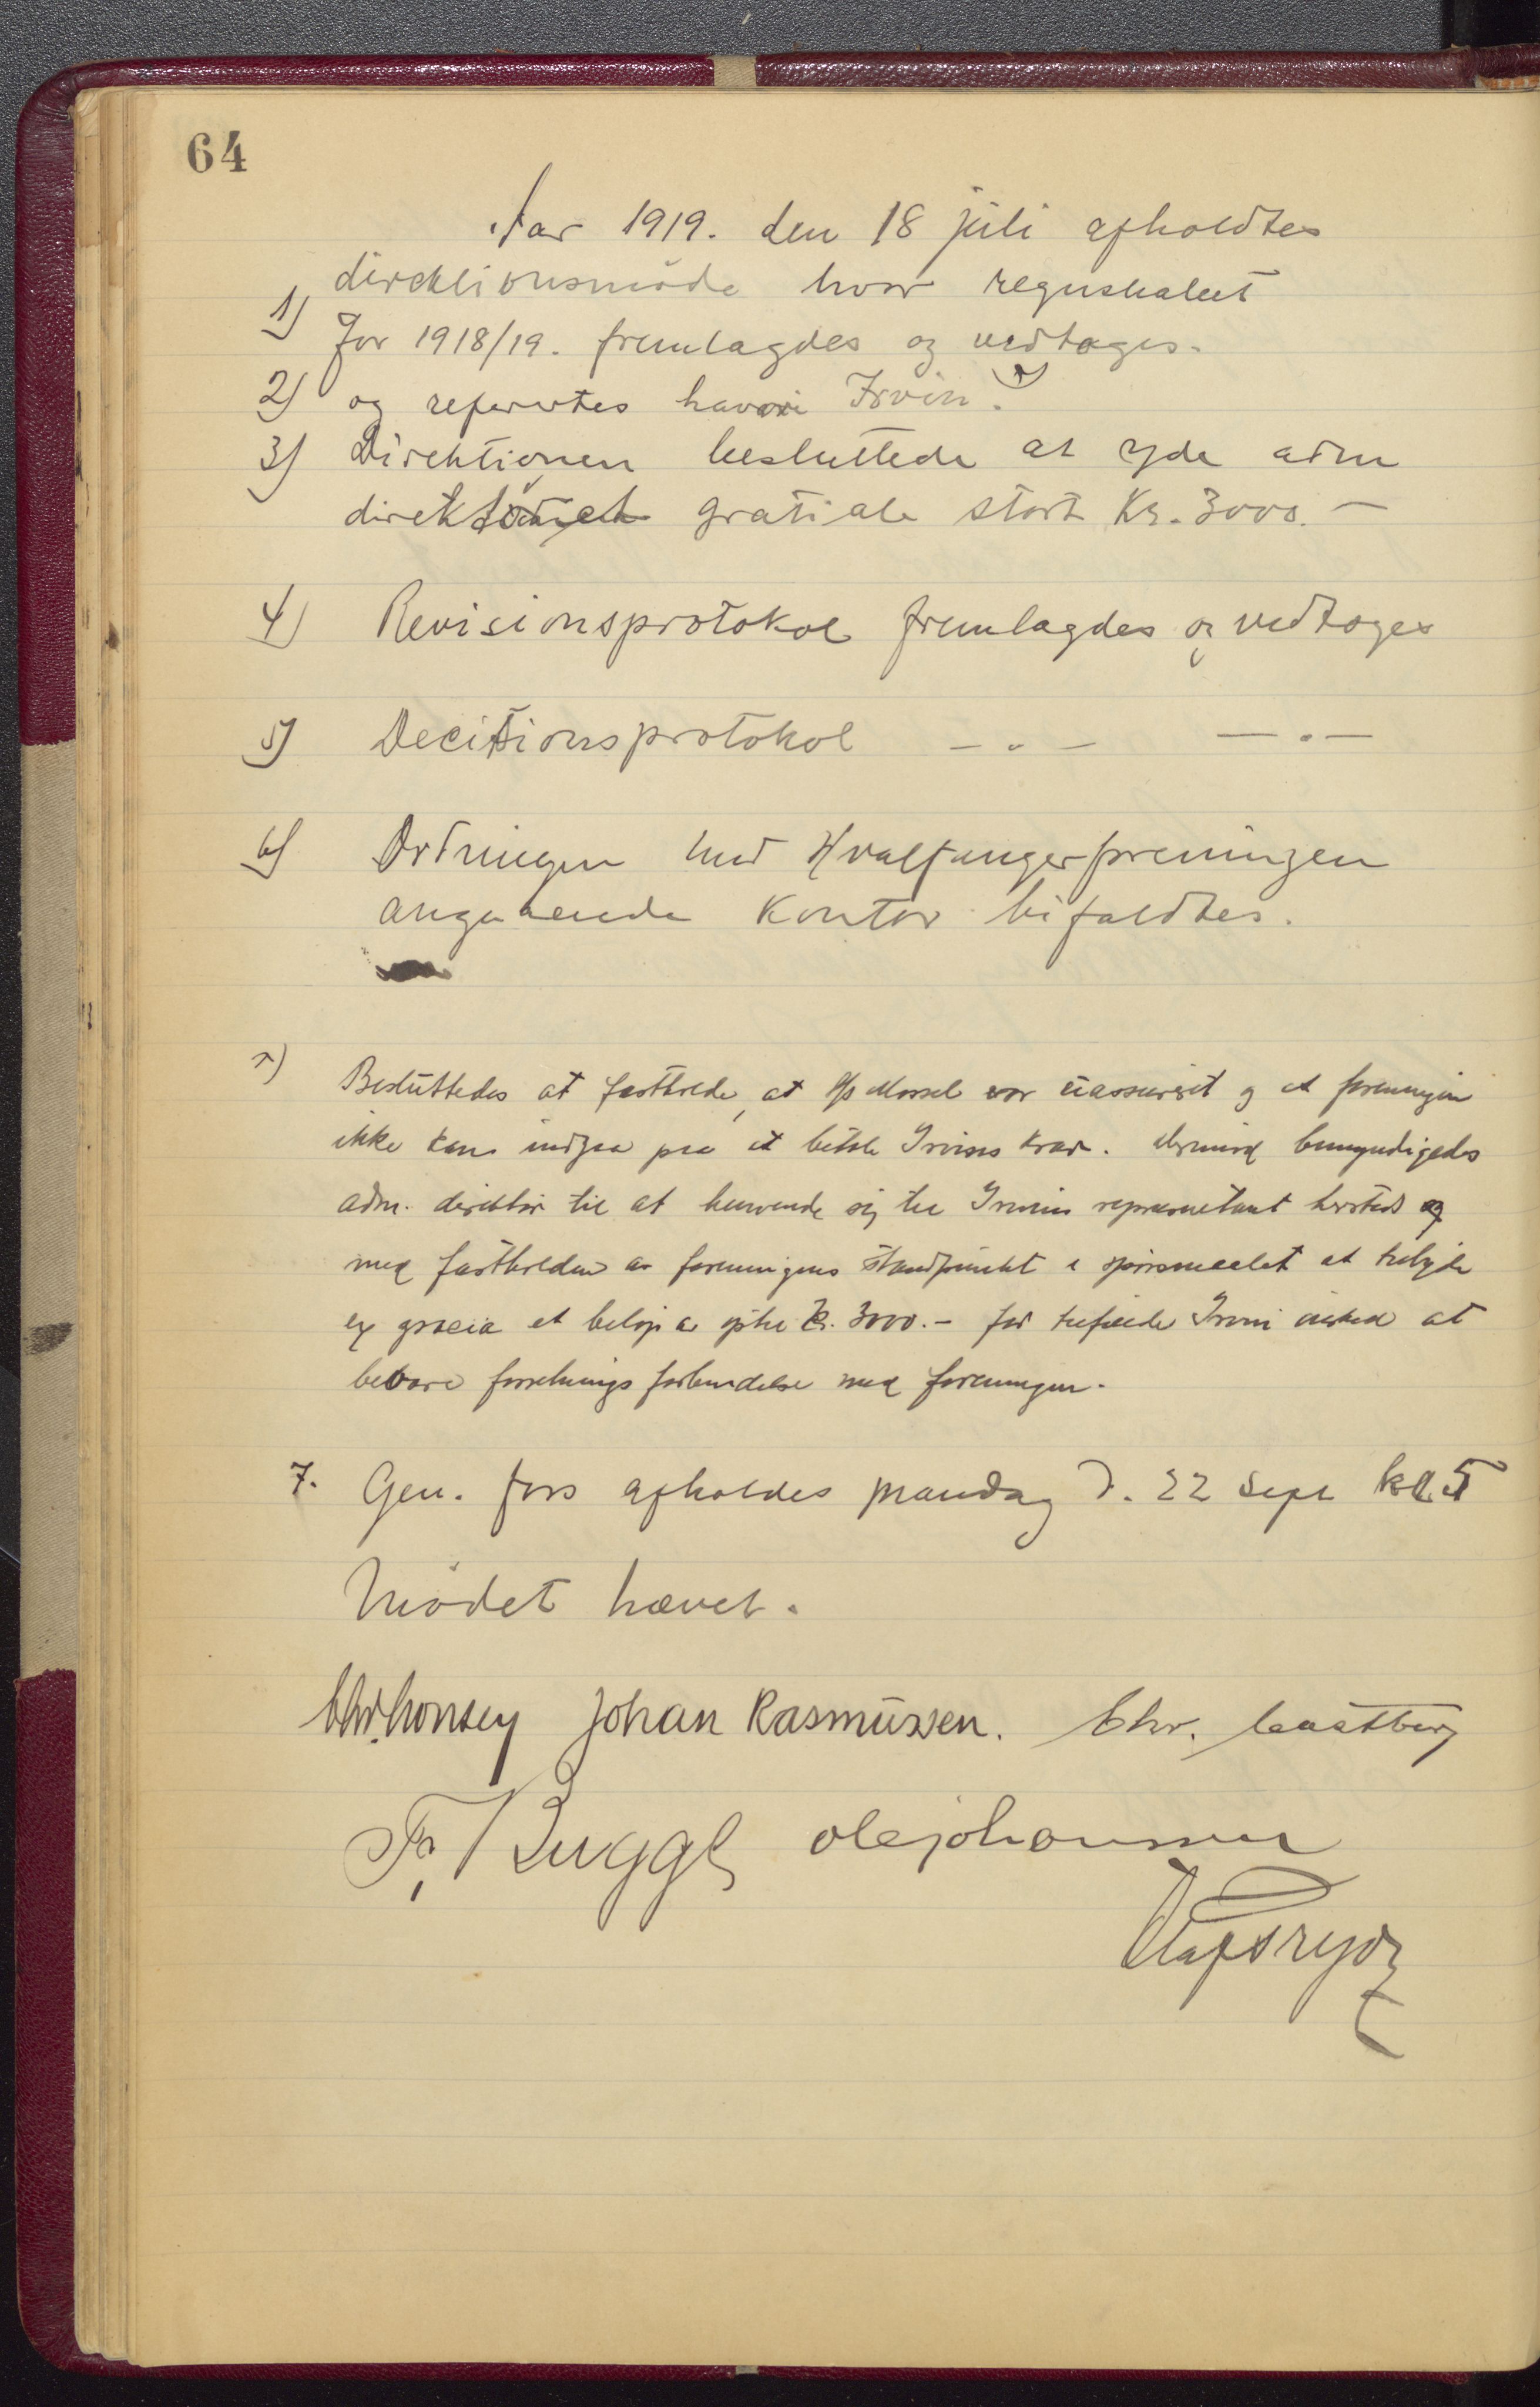 64
Aar 1919. den 18 juli afholdtes
direktionsmöde hvor regnskabet
1) for 1918/19. fremlagdes og vedtoges.
2) og refertes havari Irvin. x)
3) Direktionen besluttede at yde adm
direktör et gratiale stort Kr. 3000.-
4) Revisionsprotokol fremlagdes og vedtoges
5) Decisionsprotokol — " — — " —
6) Ordningen med Hvalfangerforeningen
angaaende Kontor bifaldtes.
x) Besluttedes at fastholde, at S/s Morsel var uassurert og at foreningen
ikke kan indgaa paa at betale Irvins krav. bemyndigedes
adm. direktör til at henvende sig til Irvins repræsentant hersteds og
med fastholden av foreningens standpunkt i spörsmaalet at tilbyde
ex gracia et belöp av optil kr. 3000.- for tilfælde Irvin önsker at
bevare forretningsforbindelse med foreningen.
7. Gen. fors afholdes mandag d. 22 Sept kl 5
Mödet hævet.
Johan Rasmüssen. Chr. Castberg
F. Bugge Ole Johannssen